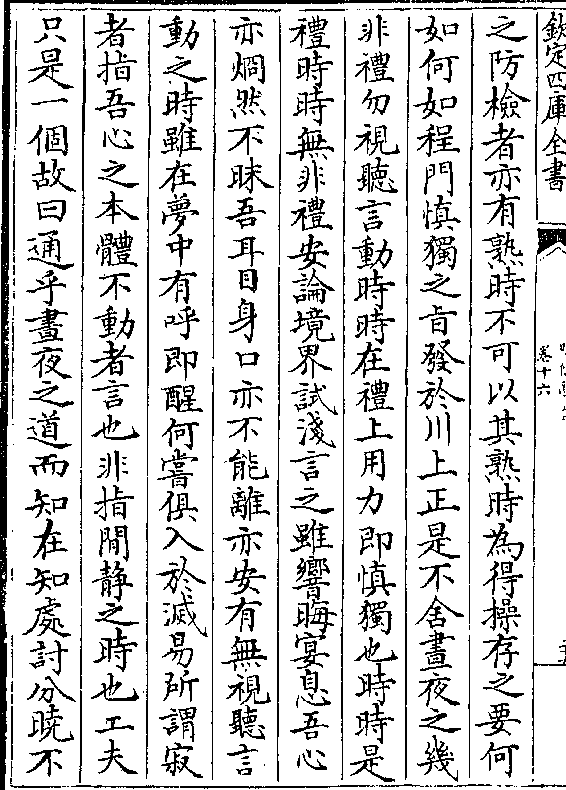 欽定四庫全書
卷十六
之防檢者亦有熟時不可以其熟時為得操存之要何
如何如程門慎獨之旨發於川上正是不舍晝夜之幾
非禮勿視聽言動時時在禮上用力即慎獨也時時是
禮時時無非禮安論境界試淺言之雖嚮晦宴息吾心
亦烱然不昧吾耳目身口亦不能離亦安有無視聽言
動之時雖在夢中有呼即醒何嘗俱入於滅易所謂寂
者指吾心之本體不動者言也非指閒静之時也工夫
只是一個故曰通乎晝夜之道而知在知處討分曉不